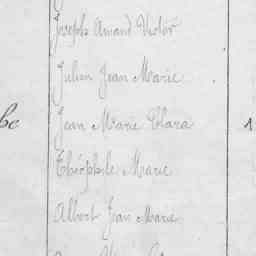 Joseph Amand Victor
Julien Jean Marie
be Jean Marie Clara 1
Théophile Marie
Albert Jean Marie